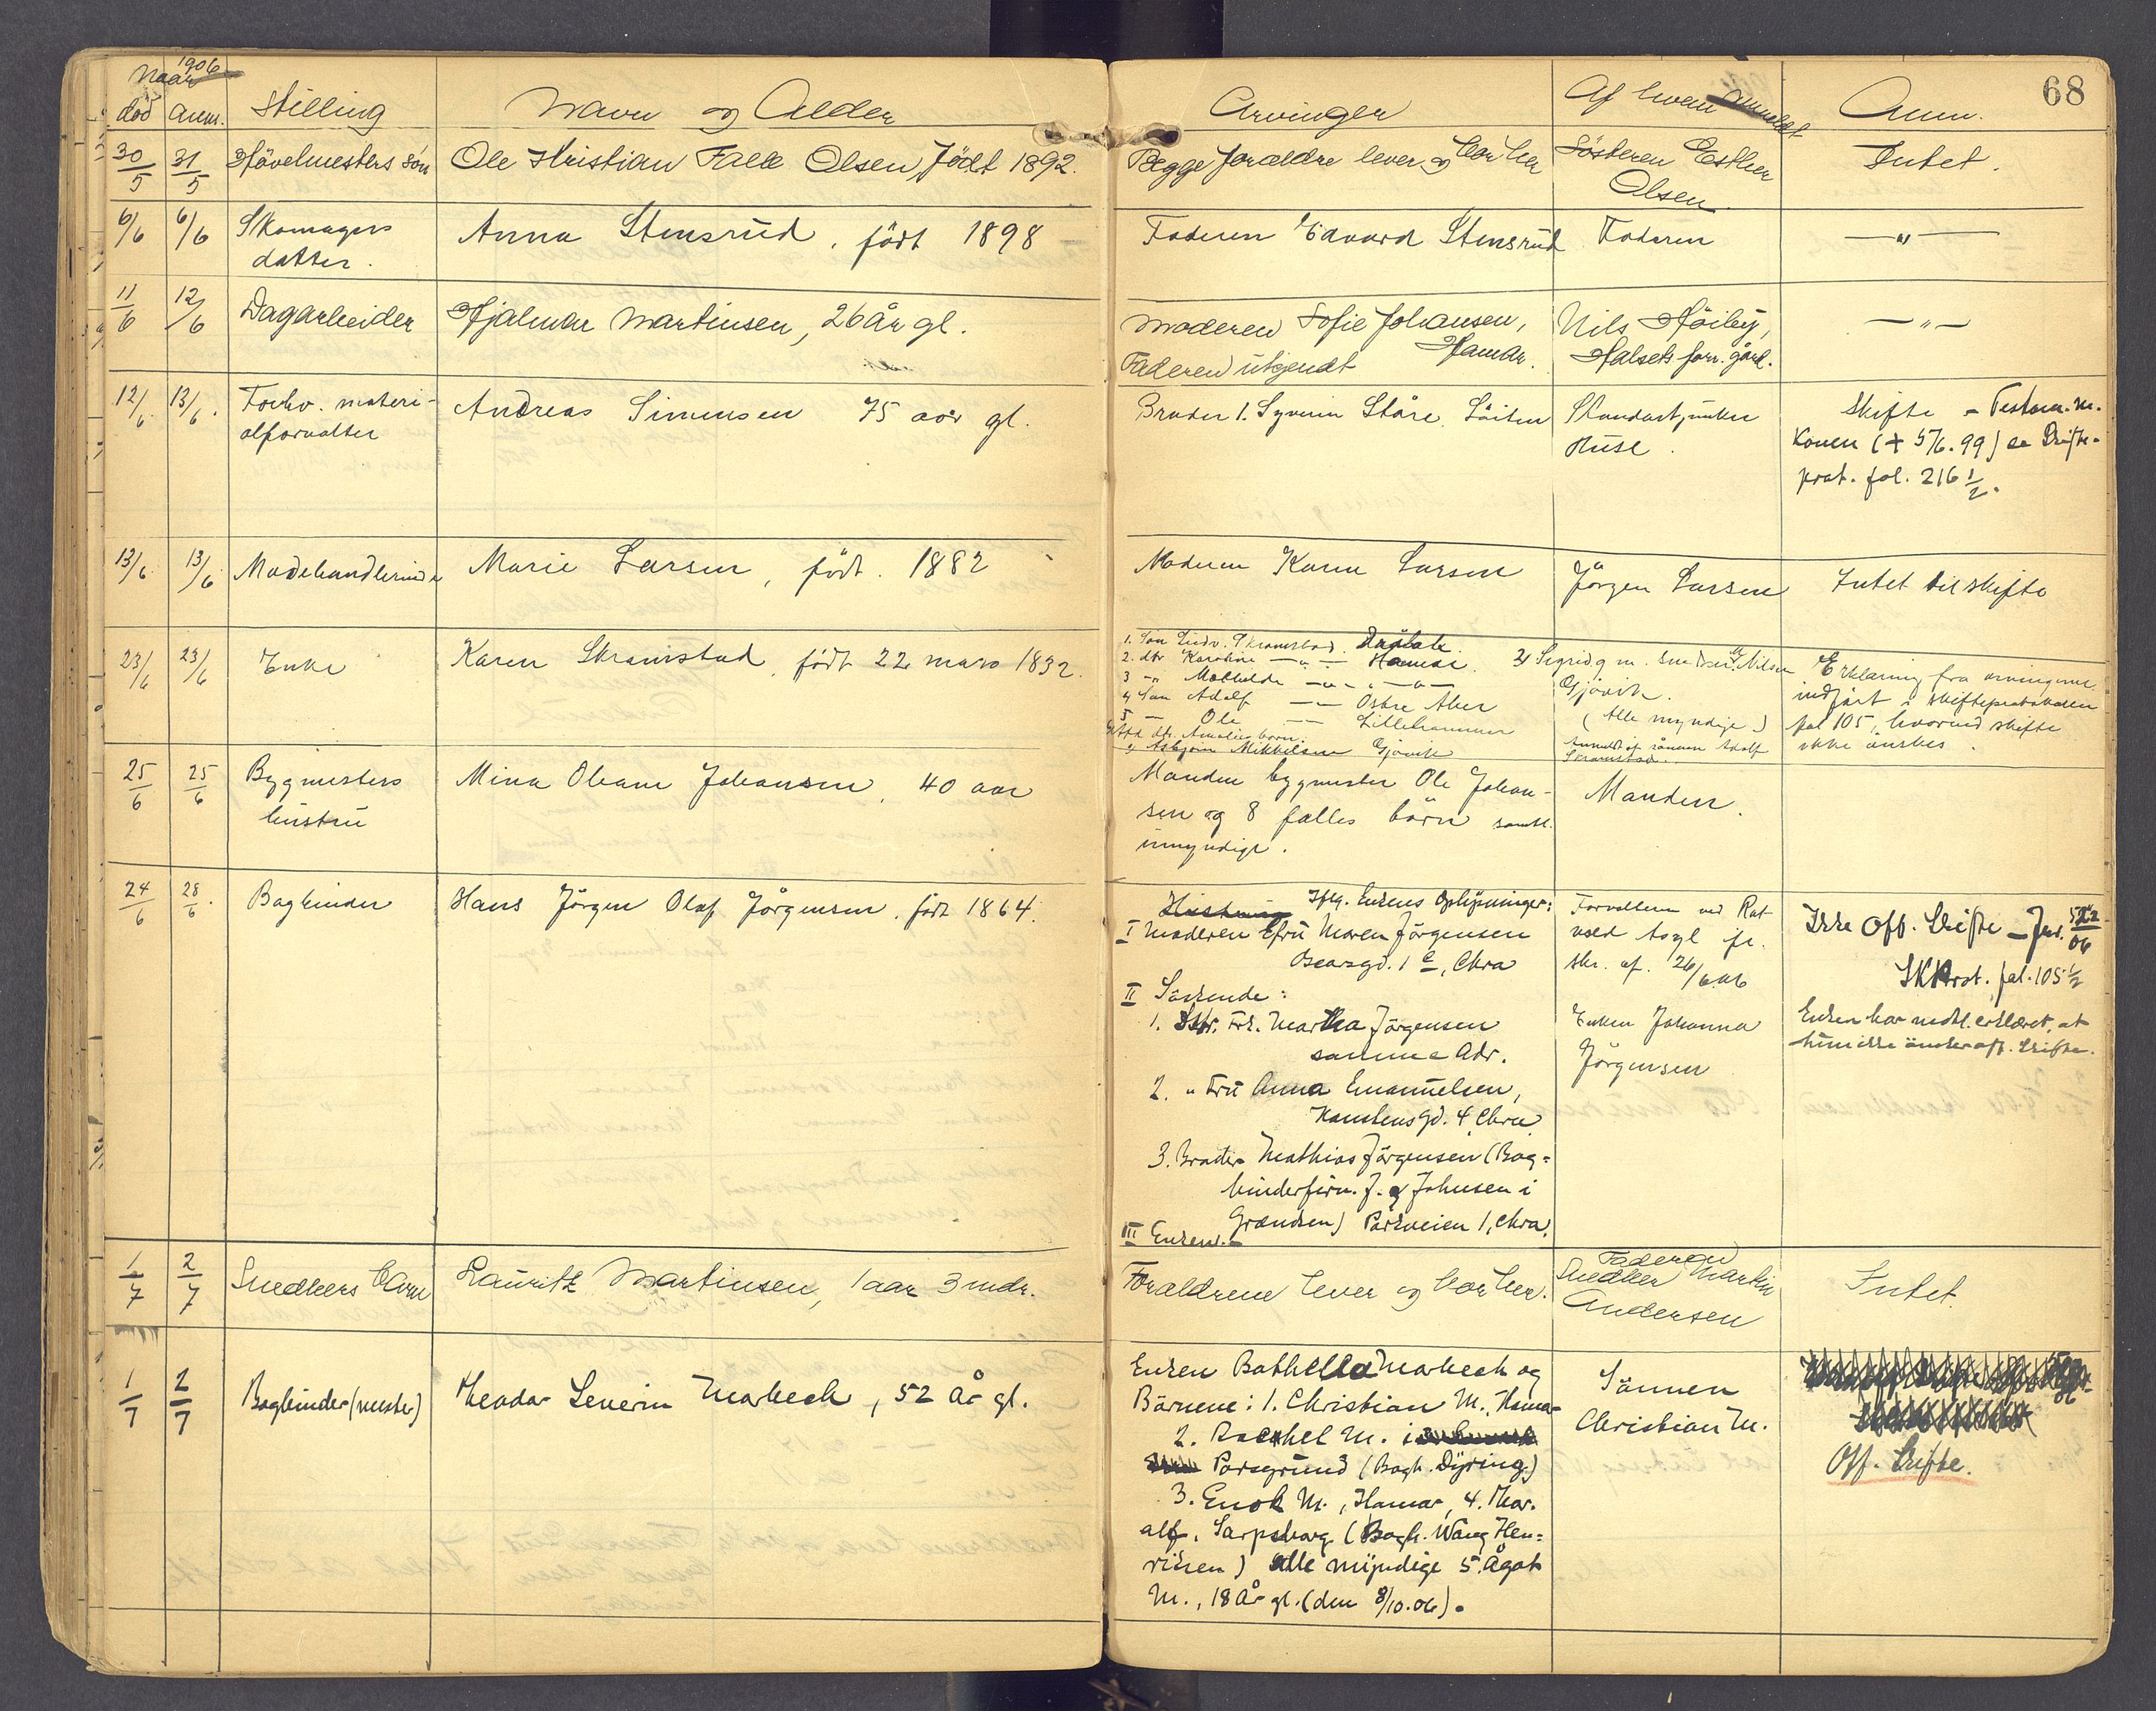 1906
Naar
död Anm. Stilling Navn og Alder Arvinger Af hvem anmeldt Anm. 68
30/5 31/5 Hövelmesters sön Ole Kristian Falle Olsen, Födt 1892. Begge forældre lever og bor her Sösteren Esther Intet.
Olsen
6/6 6/6 Skomagers Anna Stensrud, födt 1898 Faderen Edvard Stensrud Faderen —"—
datter.
11/6 12/6 Dagarbeider Hjalmar Martinsen, 26 År gl. Moderen Sofie Johansen, Nils Höiby, —"—
Hamar.
Faderen ukjendt Halsets forr. gård.
12/6 13/6. Forhv. materi- Andreas Simensen 75 aar gl. Broder 1. Syverin Ståre. Löiten Standartjunker Skifte - Testam. m.
alforvalter Huse. Konen (+ 5/6.99) se Skifte-
prot. fol. 216 1/2.
13/6. 13/6 Modehandlerinde Marie Larsen, födt. 1882 Moderen Karen Larsen Jörgen Larsen Intet til skifte
23/6 23/6 Enke Karen Skramstad, födt 22 mars 1832.
1. Sön Ludv. Skramstad. Dröbak.
2. dtr Karoline —"— Hamar.
3 —" Mathilde —"— —"—
4 Sön Adolf —— Östre Aker
5 — Ole —— Lillehammer
Afd. dtr. Amalies børn:
1) Asbjörn Mikkelsen Gjövik
2) Sigrid g. m. Nilsen
Gjövik.
(Alle myndige)
Anmeldt af sönnen Adolf
Skramstad.
Erklæring fra arvingerne
indfört i skifteprotokollen
fol 105, hvorved skifte
ikke önskes.
25/6 25/6 Bygmesters Mina Oleane Johansen, 40 aar Manden bygmester Ole Johan- Manden.
hustru sen og 8 fælles börn samtl.
umyndige.
24/6 28/6. Bogbinder Hans Jörgen Olaf Jörgensen. födt 1864.
Iflg. Enkens Oplysninger:
I Moderen Efru Maren Jörgensen
Oscarsgd. 1 c, Chra
II Söskende:
1. Str. Frk. Martha Jörgensen
samme Adr.
2. " Fru Anna Emanuelsen,
Karstensgd. 4 Chra
3. Broder Mathias Jörgensen (Bog-
binderfirm. J. & Johnsen i
Grændsen) Parkveien 1, Chra.
III Enken.-
Forvalteren ved Rot-
vold Asyl jr.
skr. af. 26/6.06
Enken Johanna
Jörgensen
Ikke Off. Skifte - Jnr. 522/06
SKProt. fol. 105 1/2
Enken har medl. erklæret, at
hun ikke önsker off. Skifte.
1/7 2/7 Snedkers barn Lauritz Martinsen, 1 aar 3 mdr. Forældrene lever og bor her. Faderen Intet.
Snedker Martin
Andersen
1/7 2/7 Bogbinder (mester) Theodor Severin Morbech, 52 År gl.
Enken Bothella Morbech og
Börnene: 1. Christian M., Hamar
2. Rachel M. i
Porsgrund (Bogh. Dyring)
3. Enok M., Hamar, 4. Thor-
alf, Sarpsborg (Bogh. Wang Hen-
riksen) Alle myndige 5. Ågot
M., 18 År gl. (den 8/10.06).
Sönnen
Christian M.
Off. Skifte.